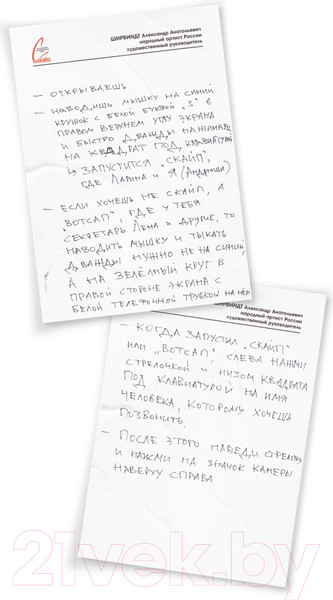 ШИРВИНДТ Александр Анатольевич
народный артист России
художественный руководитель
— ОТКРЫВАЕШЬ
— НАВОДИШЬ МЫШКУ НА СИНИЙ
КРУЖОК С БЕЛОЙ БУКВОЙ „S" В
ПРАВОМ ВЕРХНЕМ УГЛУ ЭКРАНА
И БЫСТРО ДВАЖДЫ НАЖИМАЕШЬ
НА КВАДРАТ ПОД КЛАВИАТУРОЙ
↳ ЗАПУСТИТСЯ „СКАЙП",
ГДЕ ЛАРИНА И Я (АНДРЮША)
— ЕСЛИ ХОЧЕШЬ НЕ СКАЙП, А
„ВОТСАП", ГДЕ У ТЕБЯ
СЕКРЕТАРЬ ЛЕНА И ДРУГИЕ, ТО
НАВОДИТЬ МЫШКУ И ТЫКАТЬ
ДВАЖДЫ НУЖНО НЕ НА СИНИЙ,
А НА ЗЕЛЕНЫЙ КРУГ В
ПРАВОЙ СТОРОНЕ ЭКРАНА С
БЕЛОЙ ТЕЛЕФОННОЙ ТРУБКОЙ НА НЁМ
ШИРВИНДТ Александр Анатольевич
народный артист России
художественный руководитель
— КОГДА ЗАПУСТИЛ „СКАЙП"
ИЛИ „ВОТСАП" СЛЕВА НАЖМИ
СТРЕЛОЧКОЙ И НИЗОМ КВАДРАТА
ПОД КЛАВИАТУРОЙ НА ИМЯ
ЧЕЛОВЕКА, КОТОРОМУ ХОЧЕШЬ
ПОЗВОНИТЬ.
— ПОСЛЕ ЭТОГО НАВЕДИ СТРЕЛКУ
И НАЖМИ НА ЗНАЧОК КАМЕРЫ
НАВЕРХУ СПРАВА
21vek.by / 21vek.by